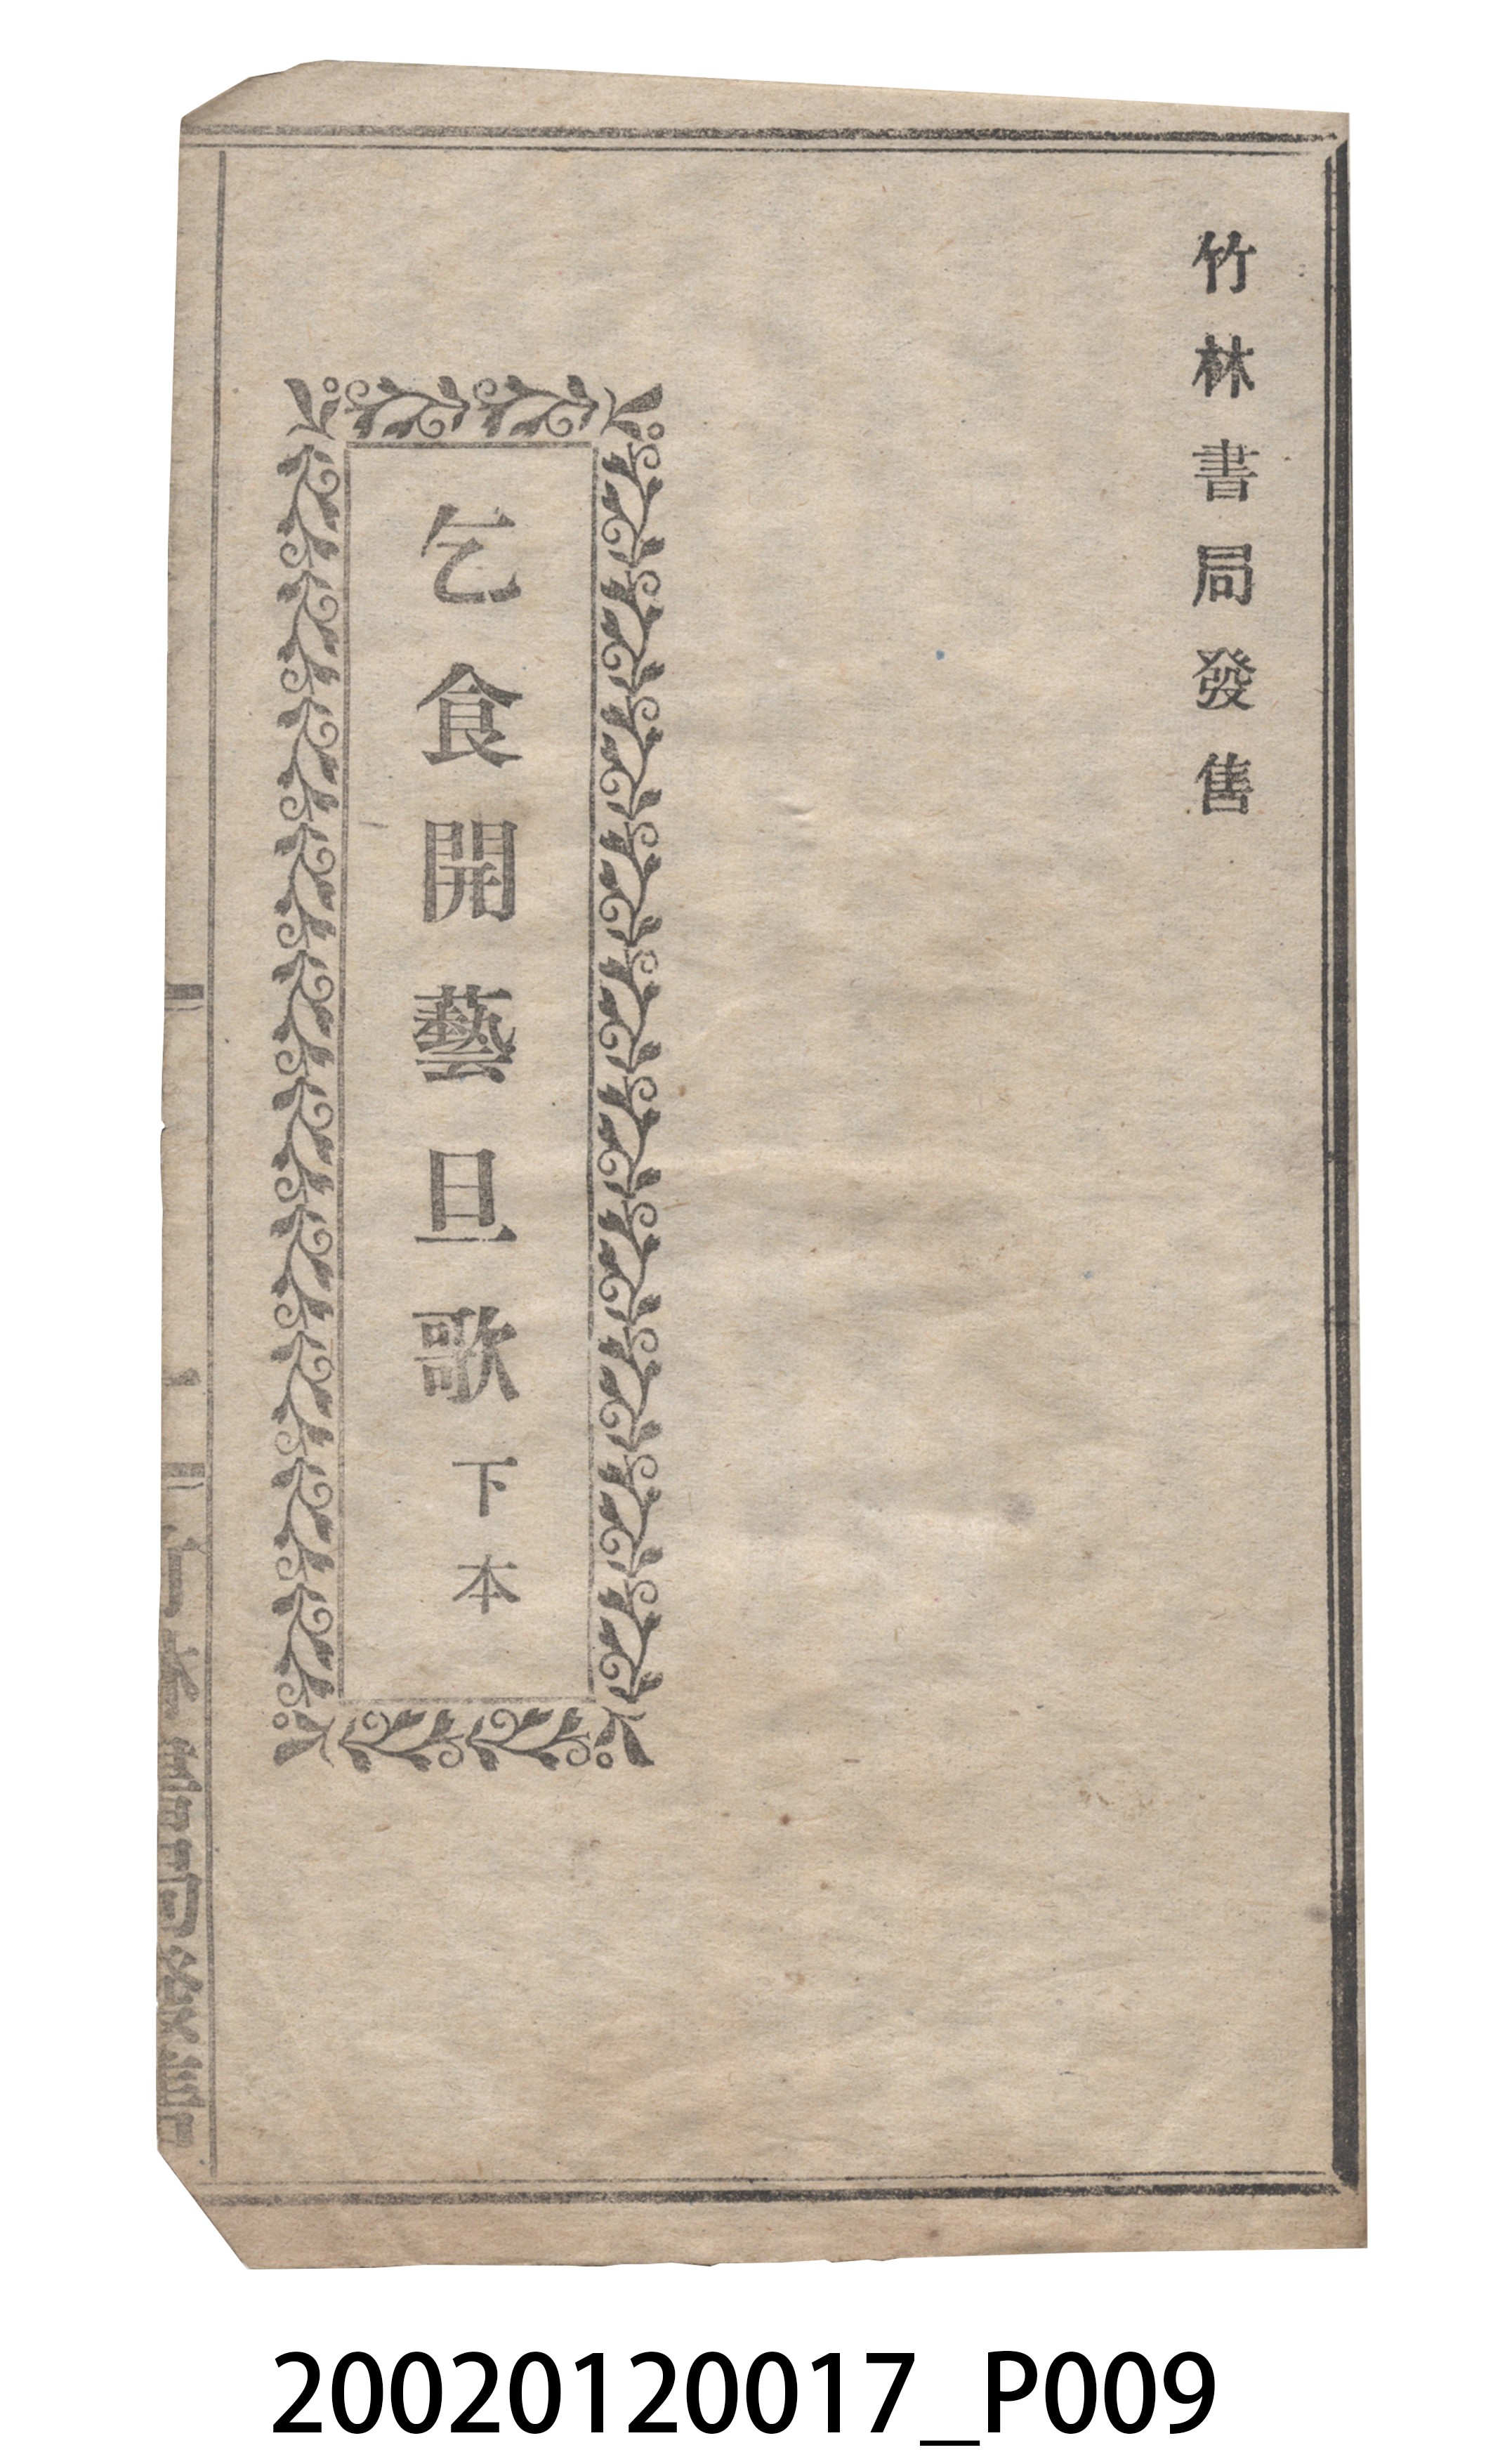 竹林書局發售
乞食開藝旦歌 下本
20020120017_P009